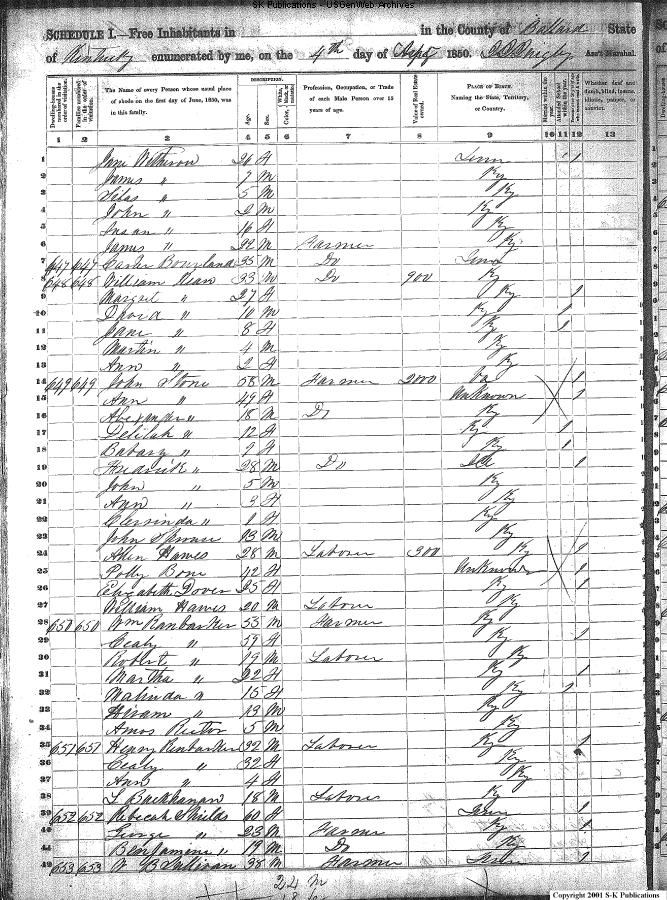 SK Publications - USGenWeb Archives
SCHEDULE I.—Free Inhabitants in in the County of Ballard State
of Kentucky enumerated by me, on the 4th day of Sept 1850. Ass't Marshal.
Dwelling-houses numbered in the order of visitation.
Families numbered in the order of visitation.
The Name of every Person whose usual place of abode on the first day of June, 1850, was in this family.
DESCRIPTION.
Age.
Sex.
Color, White, black, or mulatto.
Profession, Occupation, or Trade of each Male Person over 15 years of age.
Value of Real Estate owned.
PLACE OF BIRTH. Naming the State, Territory, or Country.
Married within the year.
Whether deaf and dumb, blind, insane, idiotic, pauper, or convict.
1 2 3 4 5 6 7 8 9 10 11 12 13
1 Jane 26 F Tenn 1
2 James " 7 M Ky
3 Silas " 5 M Ky
4 John " 2 M Ky
5 Susan " 16 F Ky
6 James " 22 M Farmer Ky
7 647 647 Carter 35 M Do Tenn
8 648 648 William Dean 33 M Do 900 Ky
9 Margret " 27 F Ky 1
10 David " 10 M Ky 1
11 Jane " 8 F Ky 1
12 Martin " 4 M Ky
13 Ann " 2 F Ky
14 649 649 John Stone 58 M Farmer 2000 Va 1
15 Ann " 49 F Unknown 1
16 Alexander " 18 M Do Ky
17 Delilah " 12 F Ky 1
18 " 9 F Ky 1
19 Fredrick " 28 M Do Ill 1
20 John " 5 M Ky
21 Ann " 3 F Ky
22 " 1 F Ky
23 John 13 M Ky
24 Hawes 28 M Laborer 300 Ky 1
25 Polly Bone 42 F Unknown 1
26 Elizabeth Dover 25 F Ky 1
27 William Hawes 20 M Laborer Ky
28 650 650 Wm Renbarker 53 M Farmer Ky
29 Cealy " 59 F Ky 1
30 Robert " 19 M Laborer Ky
31 Martha " 22 F Ky 1
32 Malinda " 15 F Ky 1
33 Hiram " 13 M Ky
34 Amos Rector 5 M Ky
35 651 651 Henry Renbarker 32 M Laborer Ky 1
36 Cealy " 32 F Ky
37 Ann " 4 F Ky
38 L Buckhanan 18 M Laborer Ky
39 652 652 Rebecah Shields 60 F Tenn 1
40 George " 23 M Farmer Ky 1
41 Benjamine " 19 M Do Ky
42 653 653 W B Sullivan 38 M Farmer Tenn 1
24 M
Copyright 2001 S-K Publications